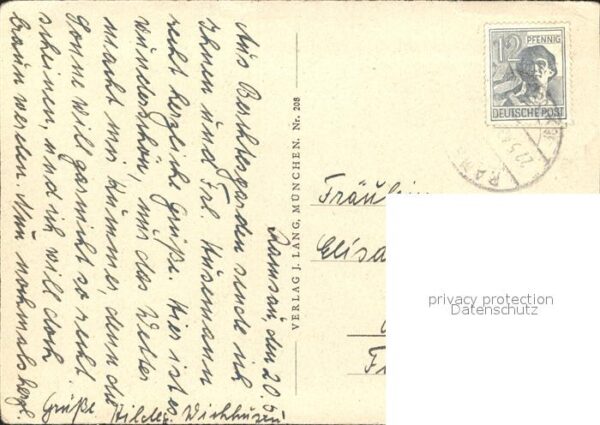 Ramsau, den 20.5.
Aus Berchtesgaden sende ich
Ihnen und Frl. Husemann
recht herzliche Grüße. Hier ist es
wunderschön, nur das Wetter
macht mir Kummer, denn die
Sonne will garnicht so recht
scheinen, und ich will doch
braun werden. Nun nochmals herzl.
Grüße Hilde
VERLAG J. LANG, MÜNCHEN. Nr. 208
12 PFENNIG
DEUTSCHE POST
Fräulein
Elisa
privacy protection
Datenschutz